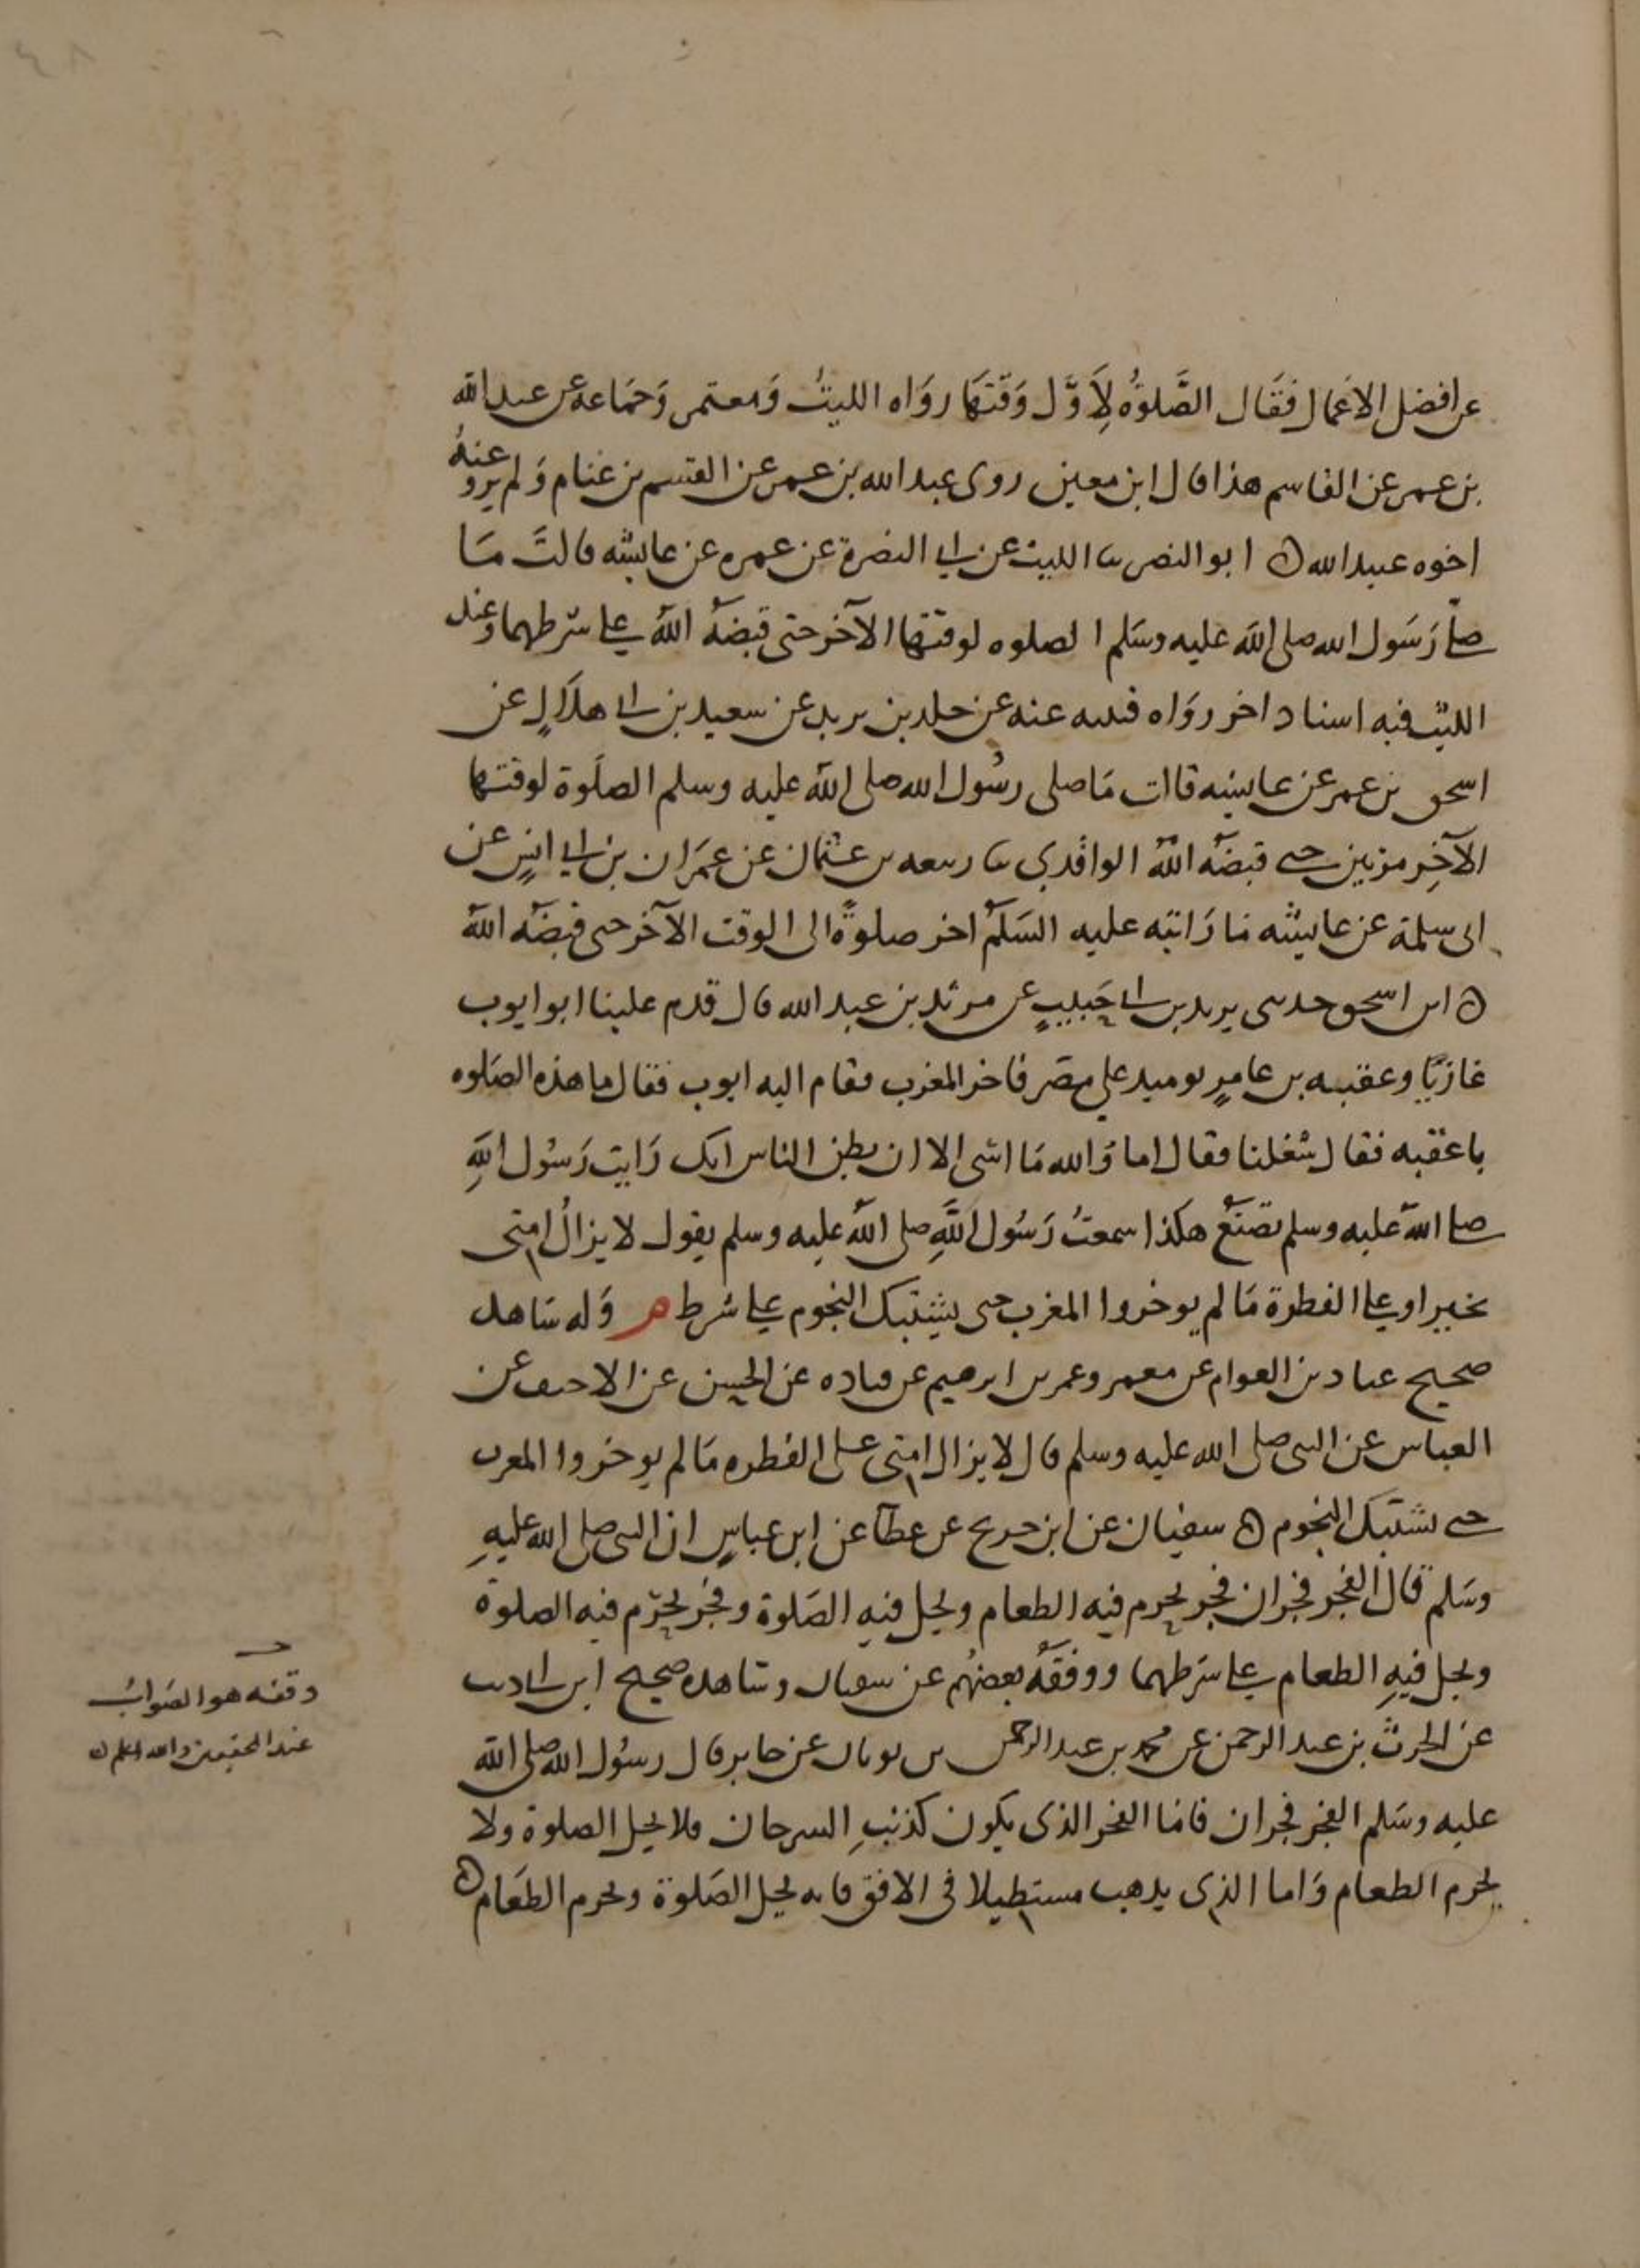 عن افضل الاعمال فقال الصَّلوٰةُ لِاَوَّل وَقتِهَا روَاه الليثُ وَمعتمر وَجمَاعه عن عبد الله
بن عمر عن القاسم هذا قال ابن معين روى عبد الله بن عمر عن القسم بن غنام وَلم يرو عنهُ
اخوه عبيد الله ۞ ابو النضر ثنا الليث عن ابي النضرة عن عمره عن عائشه قالتَ مَا
صلى رَسَول الله صلى اللهَ عليه وسَلم الصلوه لوقتها الآخر حتى قبضهُ اللهُ على شرطهما وعند
الليث فيه اسناد اخر روَاه قتيبه عنه عن خلد بن يزيد عن سعيد بن ابي هلاَلٍ عن
اسحق بن عمر عن عايشه قالت مَا صلى رسُول الله صلى اللهُ عليه وسلم الصلَوة لوقتها
الآخِر مرتين حتى قبضَه اللهُ الواقدي ثنا ربيعه بن عثمان عن عمَران بن ابي انسٍ عن
ابى سلمة عن عايشه مَا رَايته عليه السَلَم اخر صلوةً الى الوقت الآخر حتى قبضَه اللهُ
۞ ابن اسحق حدثنى يزيد بن ابي حَبيبٍ عن مرثد بن عبد الله قال قدم علينا ابو ايوب
غازيًا وعقبه بن عامرٍ يوميد على مصَر فاخر المغرب فقام اليه ايوب فقال ما هذه الصَلوه
يا عقبه فقال شغلنا فقال اما وَالله مَا اسَى الا ان يظن الناس انك رَايت رَسُول اللهِ
صلى اللهُ عليه وسلم يصَنعُ هكذا سمعتُ رَسُول اللَّهِ صلى اللهُ عليه وسلم يقول لا يزالُ امتى
بخير او على الفطرة مَا لم يوخروا المغرب حتى يشتبك النجوم على شرط م وَله شاهد
صحيح عباد بن العوام عن معمر وعمر بن ابرهيم عن قتاده عن الحسن عن الاحنف عن
العباس عن النبى صلى الله عليه وسلم قال لا يزال امتى على الفطره مَا لم يوخروا المغرب
حتى تشتبك النجوم ۞ سفيان عن ابن جريج عن عطآ عن ابن عباسٍ ان النبى صلى الله عليهِ
وسَلم قال الفجر فجران فجر يحرم فيه الطعام ويحل فيهِ الصَلوة وفجر يحرّم فيه الصلوة
ويحل فيهِ الطعام على شرطهما ووقفهُ بعضُهم عن سفيان وشاهده صحيح ابن ابي ذيب
عن الحرث بن عبد الرحمن عن محمد بن عبد الرحمن بن ثوبان عن جابر قال رسُول الله صلى الله
عليه وسَلم الفجر فجران فامَا الفجر الذى يكون كذنبِ السرحان فلا يحل الصلوة ولا
يحرم الطعام وَاما الذى يذهب مستطيلا فى الافق فانه يحل الصَلوة ويحرم الطعَام ۞
وقفه هو الصَوابُ
عند المحققين والله اعلم